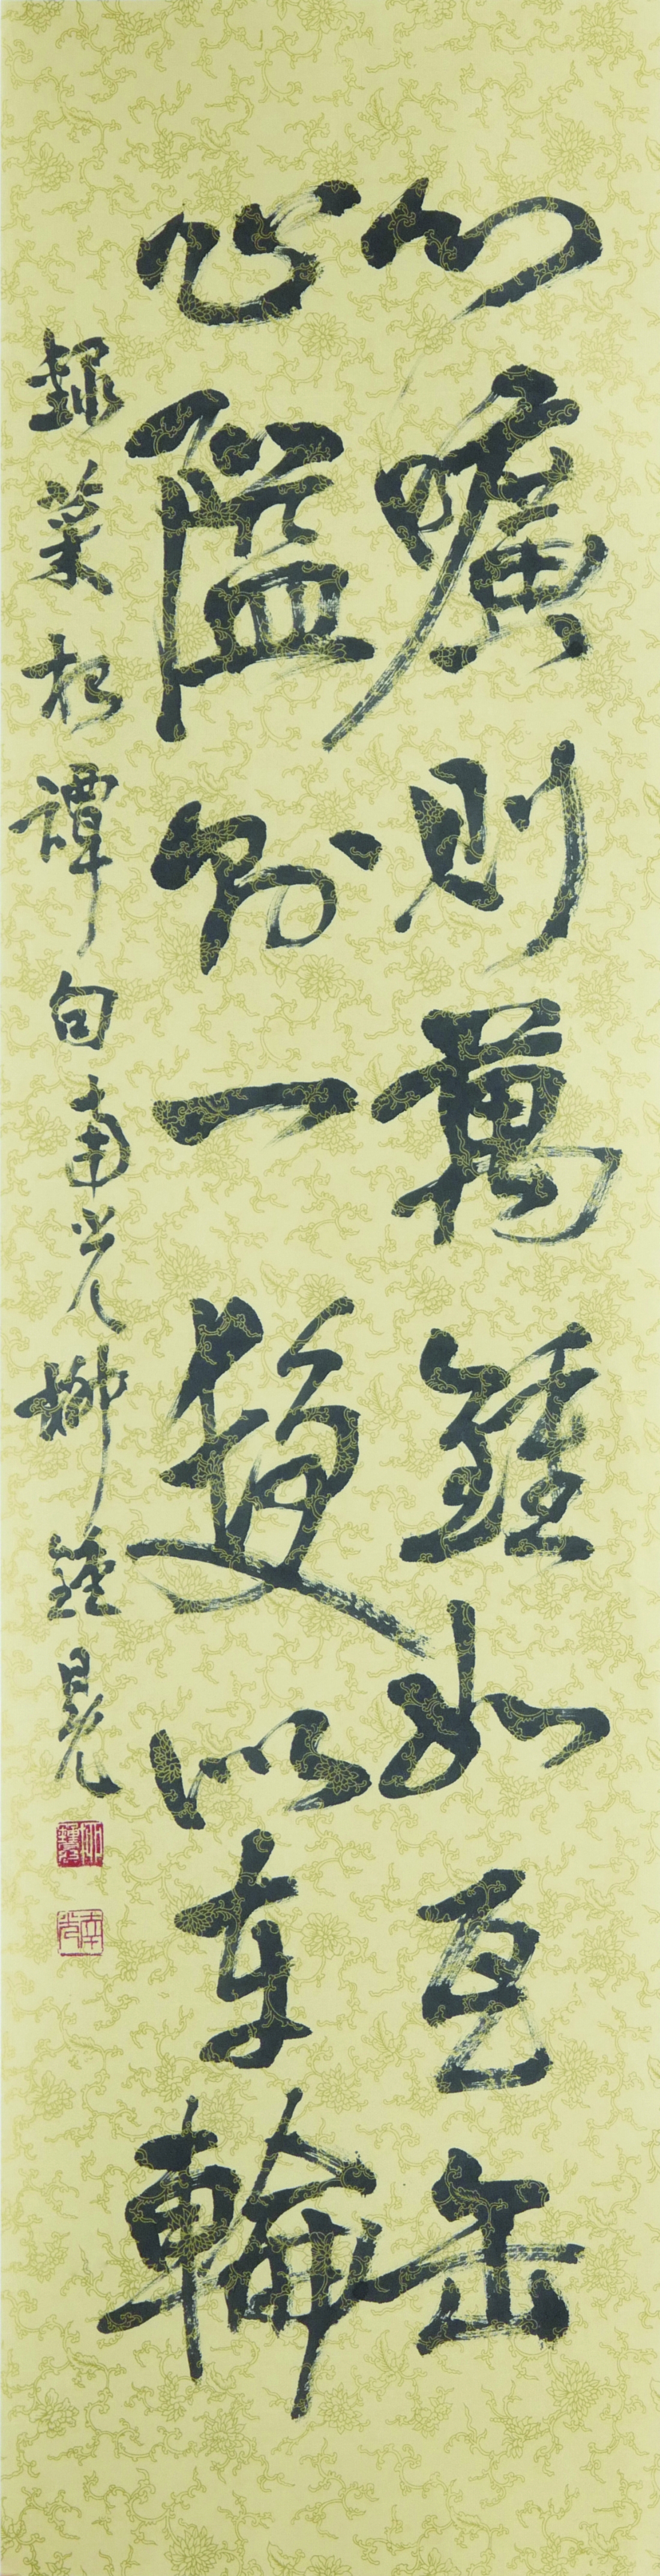 心曠則萬鍾如瓦缶
心隘則一髮似車輪
錄菜根譚句南光柳鍾晃
南光